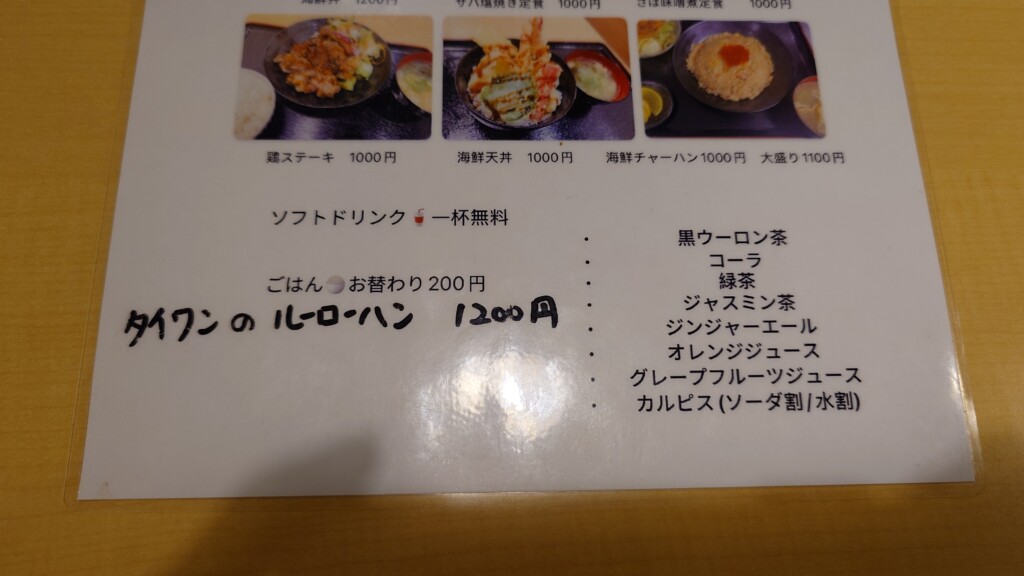 海鮮丼 1200円 サバ塩焼き定食 1000円 さば味噌煮定食 1000円
鶏ステーキ 1000円 海鮮天丼 1000円 海鮮チャーハン1000円 大盛り1100円
ソフトドリンク🥤一杯無料
ごはん⚪お替わり200円
タイワンの ルーローハン 1200円
・ 黒ウーロン茶
・ コーラ
・ 緑茶
・ ジャスミン茶
・ ジンジャーエール
・ オレンジジュース
・ グレープフルーツジュース
・ カルピス(ソーダ割/水割)